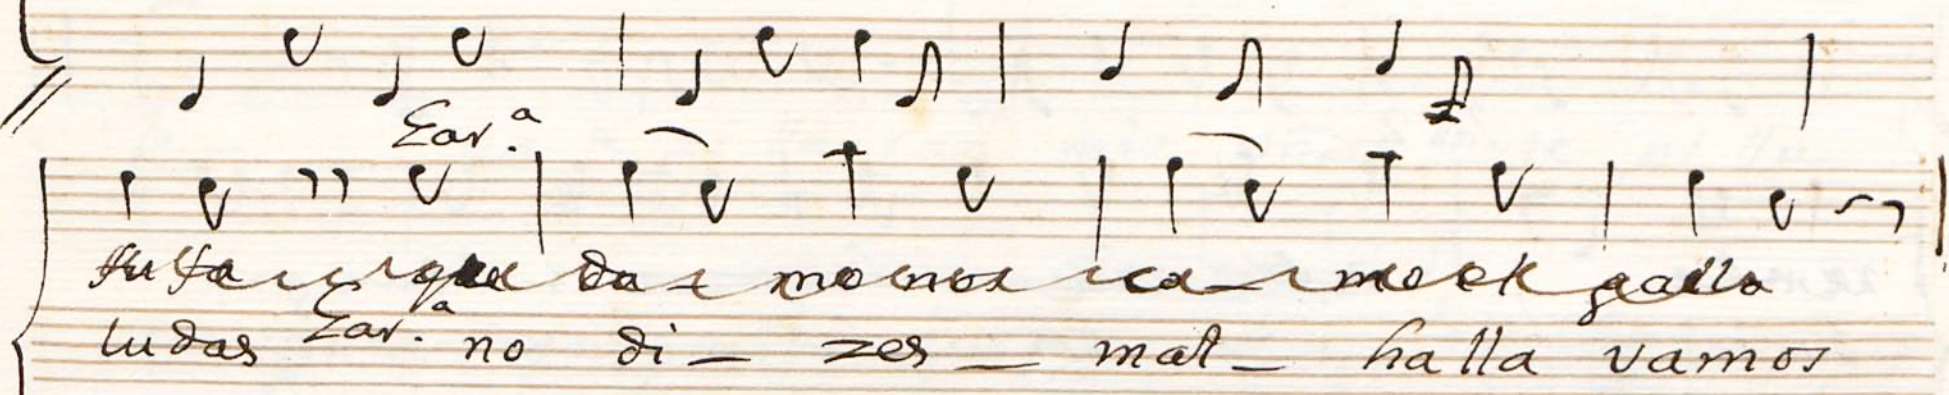 Zar.ª
fulfa que da - monos ca - mo el gallo
ludas Zar.ª no di - zes - mal - halla vamos